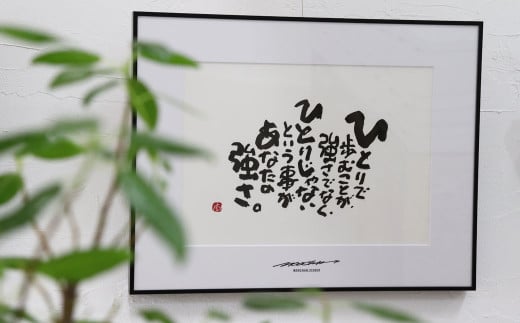 ひとりで
歩むことが
強さでなく
ひとりじゃない
という事が
あなたの
強さ。